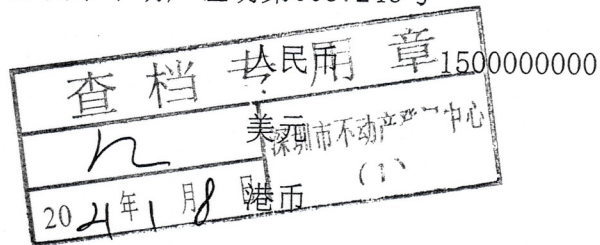 查档专用章
人民币 1500000000
美元
深圳市不动产登记中心
(1)
2021年1月8日
港币